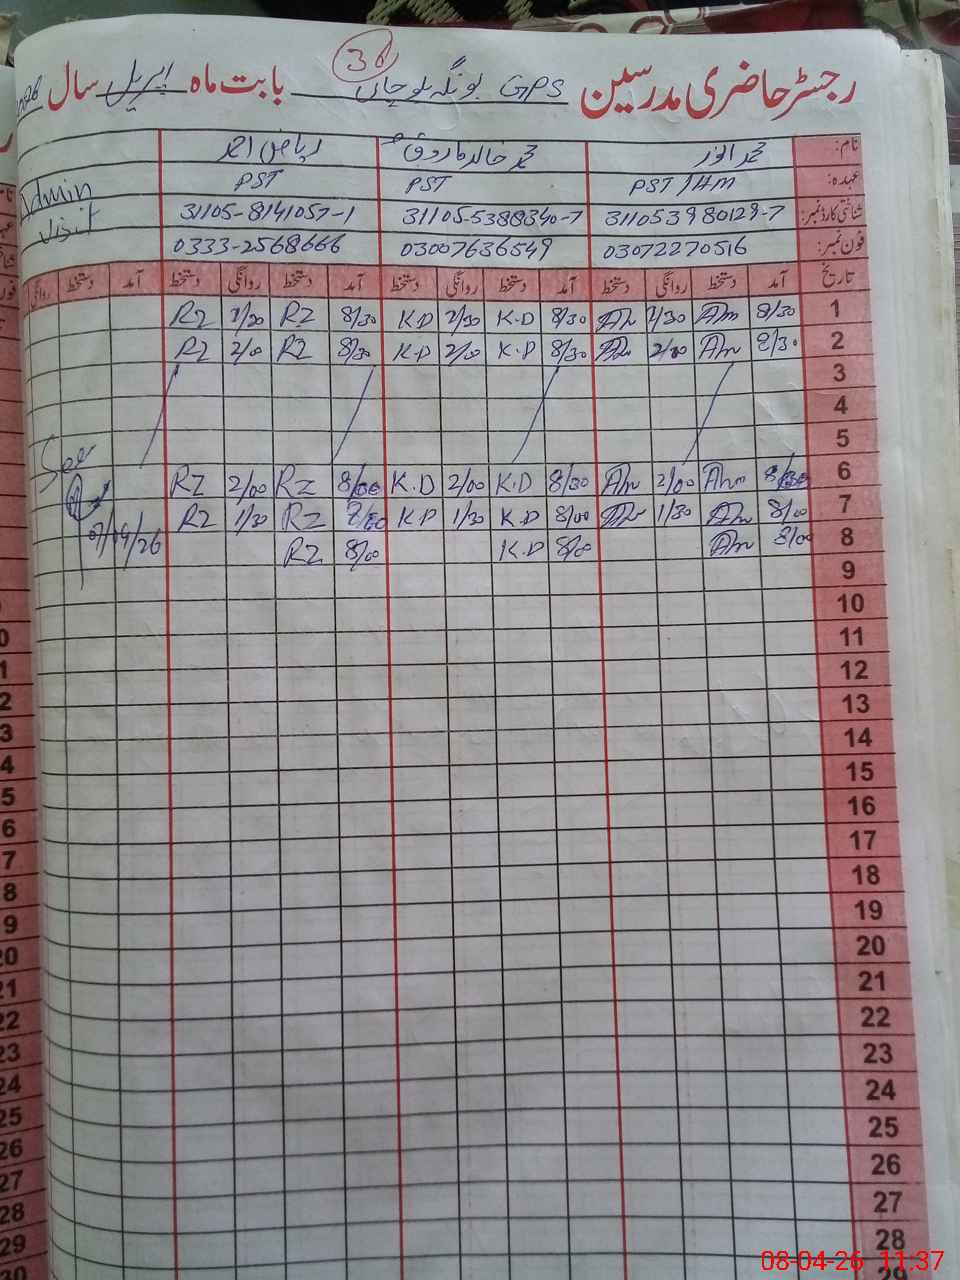 رجسٹر حاضری مدرسین GPS بونگہ بلوچاں بابت ماہ اپریل سال 2026
36
نام: محمد انور محمد خالد فاروق ریاض احمد
عہدہ: PST/HM PST PST Admin
شناختی کارڈ نمبر: 311053980129-7 31105-5388340-7 31105-8141057-1 Visit
فون نمبر: 03072270516 03007636549 0333-2568666
تاریخ آمد دستخط روانگی دستخط آمد دستخط روانگی دستخط آمد دستخط روانگی دستخط آمد دستخط روانگی
1 8/30 Am 2/30 Am 8/30 K.D 2/30 K.D 8/30 RZ 2/30 RZ
2 8/30 Am 2/00 Am 8/30 K.D 2/00 K.D 8/30 RZ 2/00 RZ
3
4
5
6 8/30 Am 2/00 Am 8/30 K.D 2/00 K.D 8/30 RZ 2/00 RZ See
7 8/00 Am 1/30 Am 8/00 K.D 1/30 K.D 8/00 RZ 1/30 RZ
8 8/00 Am 8/00 K.D 8/00 RZ 07/04/26
9
10
11
12
13
14
15
16
17
18
19
20
21
22
23
24
25
26
27
28
29
08-04-26 11:37